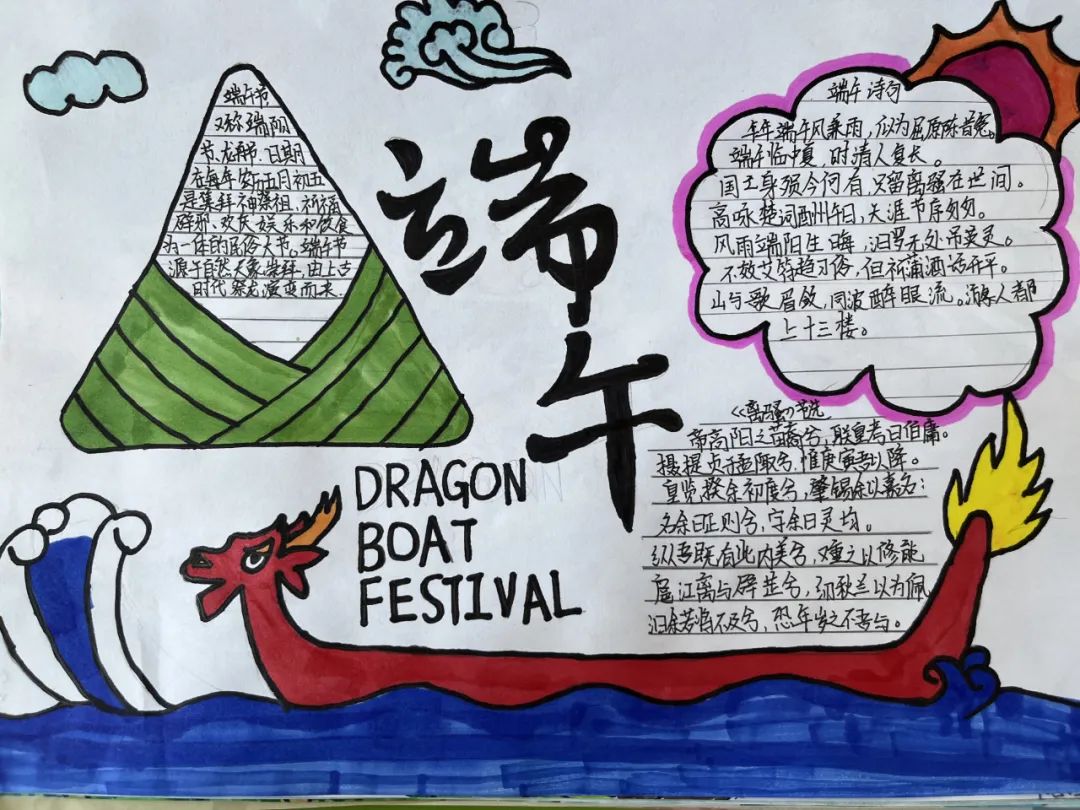 端午节
又称端阳
节、龙舟节、日期
在每年农历五月初五
是集拜神祭祖、祈福
辟邪、欢庆娱乐和饮食
为一体的民俗大节。端午节
源于自然天象崇拜,由上古
时代祭龙演变而来。
端午
DRAGON
BOAT
FESTIVAL
端午诗句
年年端午风兼雨,似为屈原陈昔冤。
端午临中夏,时清人复长。
国土身殒今何有,只留离骚在世间。
高咏楚词酬午日,天涯节序匆匆。
风雨端阳生晦,汨罗无处吊英灵。
不效艾符趋习俗,但祈蒲酒话升平。
山与歌眉敛,同波醉眼流。游人都
上十三楼。
《离骚》节选
帝高阳之苗裔兮,朕皇考曰伯庸。
摄提贞于孟陬兮,惟庚寅吾以降。
皇览揆余初度兮,肇锡余以嘉名:
名余曰正则兮,字余曰灵均。
纷吾既有此内美兮,又重之以修能
扈江离与辟芷兮,纫秋兰以为佩
汩余若将不及兮,恐年岁之不吾与。